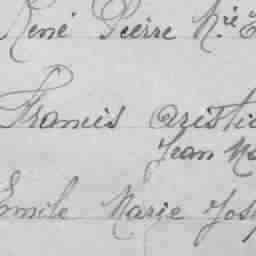 René Pierre M.ie
Francis Aristi
Jean Ma
Emile Marie Jos